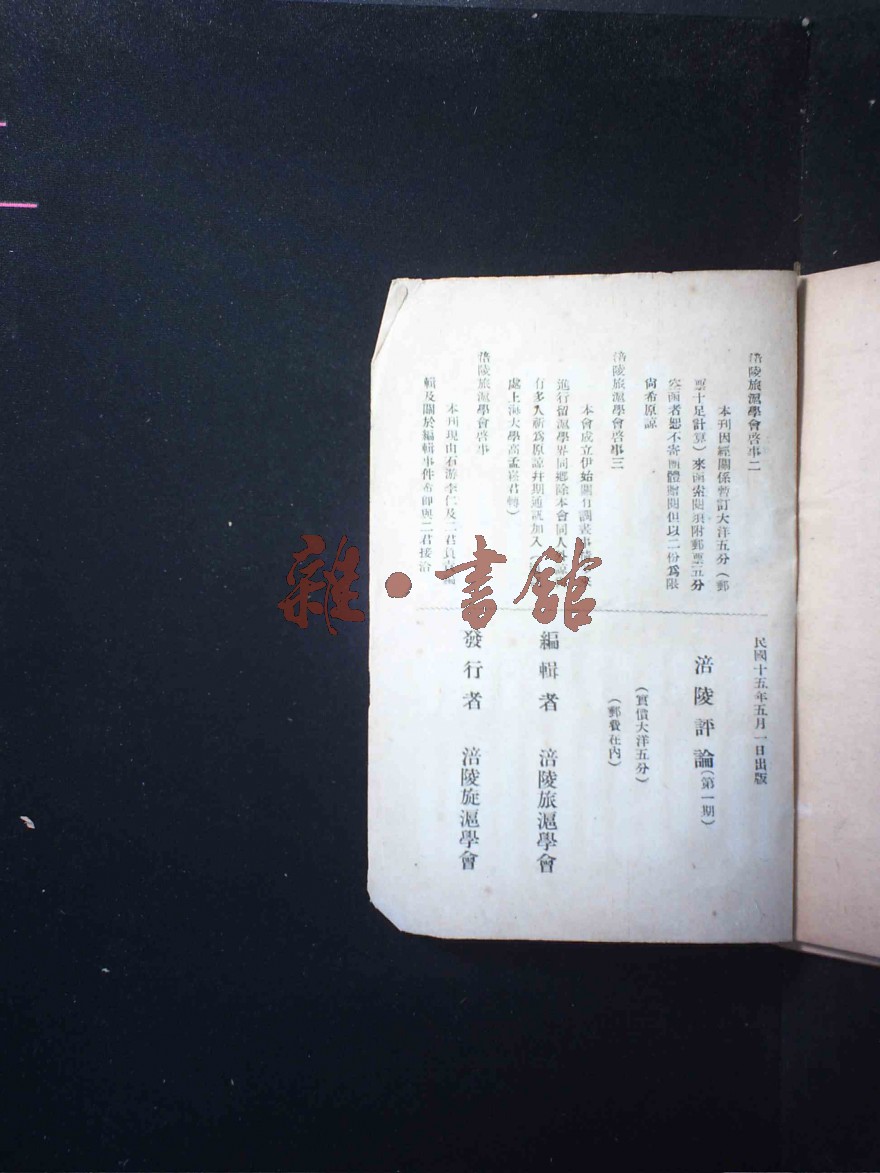 涪陵旅滬學會啓事二
本刊因經關係暫訂大洋五分（郵
票十足計算）來函索閱須附郵票五分
空函者恕不寄團體贈閱但以二份爲限
尙希原諒
涪陵旅滬學會啓事三
本會成立伊始關
進行留滬學界同鄉除本會同人
有多人祈爲原諒幷期通訊加入
處上海大學高孟 君轉）
涪陵旅滬學會啓事
本刋現由石游李仁及二君負責
輯及關於編輯事件希卽與二君接洽
民國十五年五月一日出版
涪陵評論（第一期）
（實價大洋五分）
（郵費在內）
編輯者 涪陵旅滬學會
發行者 涪陵旅滬學會
雜·書館